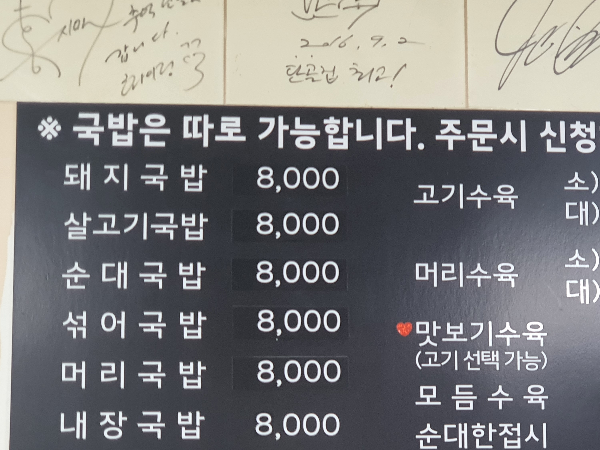 시마
추억
갑니다.
2016.9.2
단골집 최고!
※ 국밥은 따로 가능합니다. 주문시 신청
돼지국밥 8,000
살고기국밥 8,000
순대국밥 8,000
섞어국밥 8,000
머리국밥 8,000
내장국밥 8,000
고기수육 소)
대)
머리수육 소)
대)
맛보기수육
(고기 선택 가능)
모듬수육
순대한접시